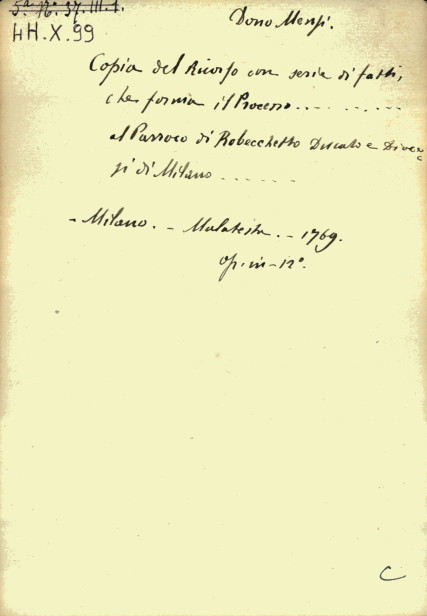 5ª. Nº. 37. III. 1.
HH.X.99
Dono Mensi.
Copia del Ricorso con serie di fatti,
che forma il Processo..........
al Parroco di Robecchetto Ducato e Dioce
si di Milano ......
- Milano. - Malatesta. - 1769.
op. in - 12º.
C